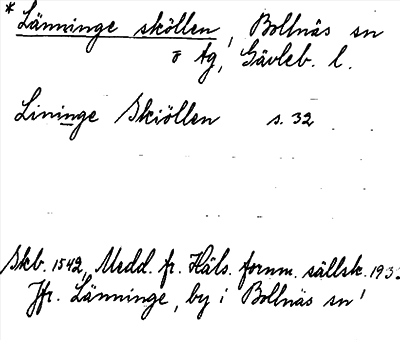 * Länninge sköllen, Bollnäs sn
o tg, Gävleb. l.
Lininge Skiöllen s. 32
Skb. 1542, Medd. fr. Häls. fornm. sällsk. 1933
Jfr. Länninge, by i Bollnäs sn!